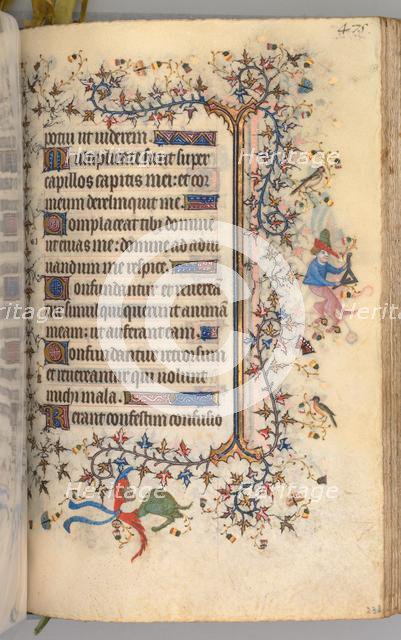 475
potui ut viderem.
Multiplicate sunt super
capillos capitis mei: et cor
meum dereliquit me.
Complaceat tibi domine
ut eruas me: domine ad adiu
uandum me respice.
Confundantur et reuerea
simul qui querunt animã
meam: ut auferant eam.
Confundantur retrorsum
et reuereantur qui uolunt
michi mala.
Ferant confestim confusio
238
Heritage
Heritage
Heritage
Heritage
Heritage
Heritage